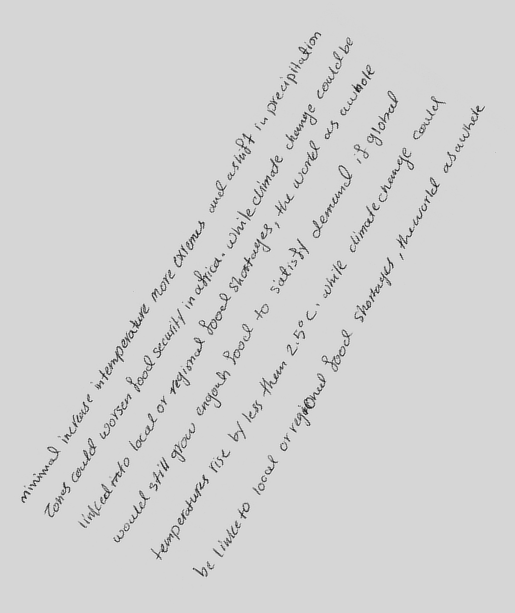 minimal increase intemperature more extemes and ashift in precipitation
Zones could worsen food security in africa. while climate change could be
linkced into local or regional food shortages, the world as awhole
would still grow engouh food to satisfy demand if global
temperatures rise by less them 2.5°C. while climatechange could
be linke to local or regional food shortages, theworld asawhole